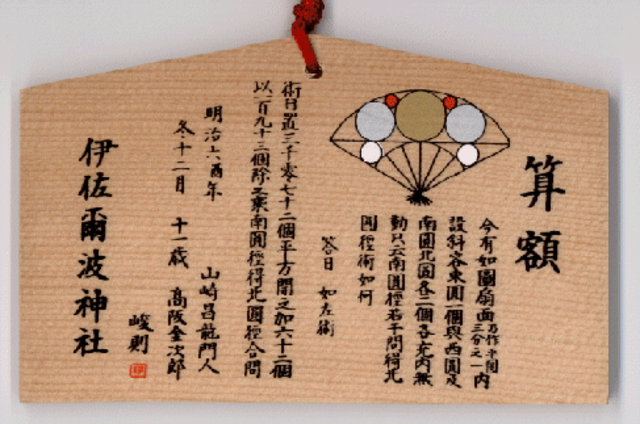 算額
今有如圖扇面三分之一内
設斜容東圓一個與西圓及
南圓北圓各二個各充内無
動只云南圓徑若干問得北
圓徑術如何
答曰 如左術
術曰置三千零七十二個平方開之加六十二個
以一百九十三個除之乘南圓徑得北圓徑合問
明治六酉年 山崎昌龍門人
冬十二月 十一歳 高阪金次郎
峻則
伊佐爾波神社